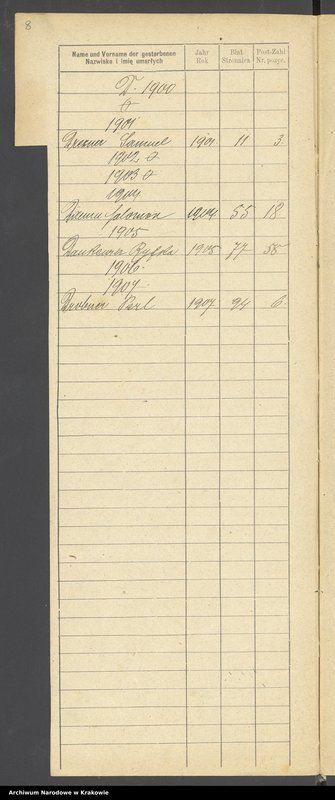 8
Name und Vorname der gestorbenen
Nazwisko i imię umarłych
Jahr
Rok
Blatt
Stronnica
Post-Zahl
Nr. pozyc.
D. 1900
1901
Drexner Samuel 1901 11 3
1902
1903
1904
Salomon 1904 55 18
1905
1905 77 58
1906
1907
1907 94 6
Archiwum Narodowe w Krakowie